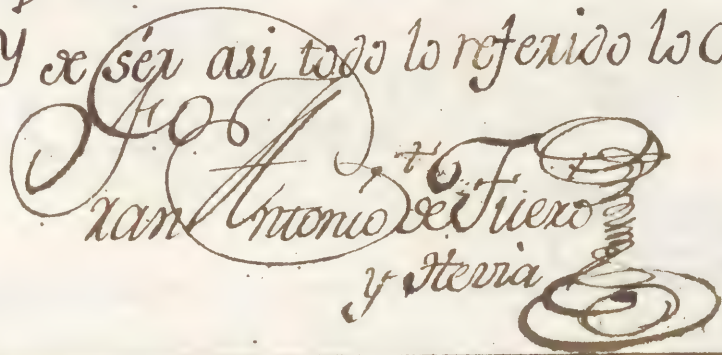 Y de sér asi todo lo referido lo
Fran Antonio de Fuero
y Hevia